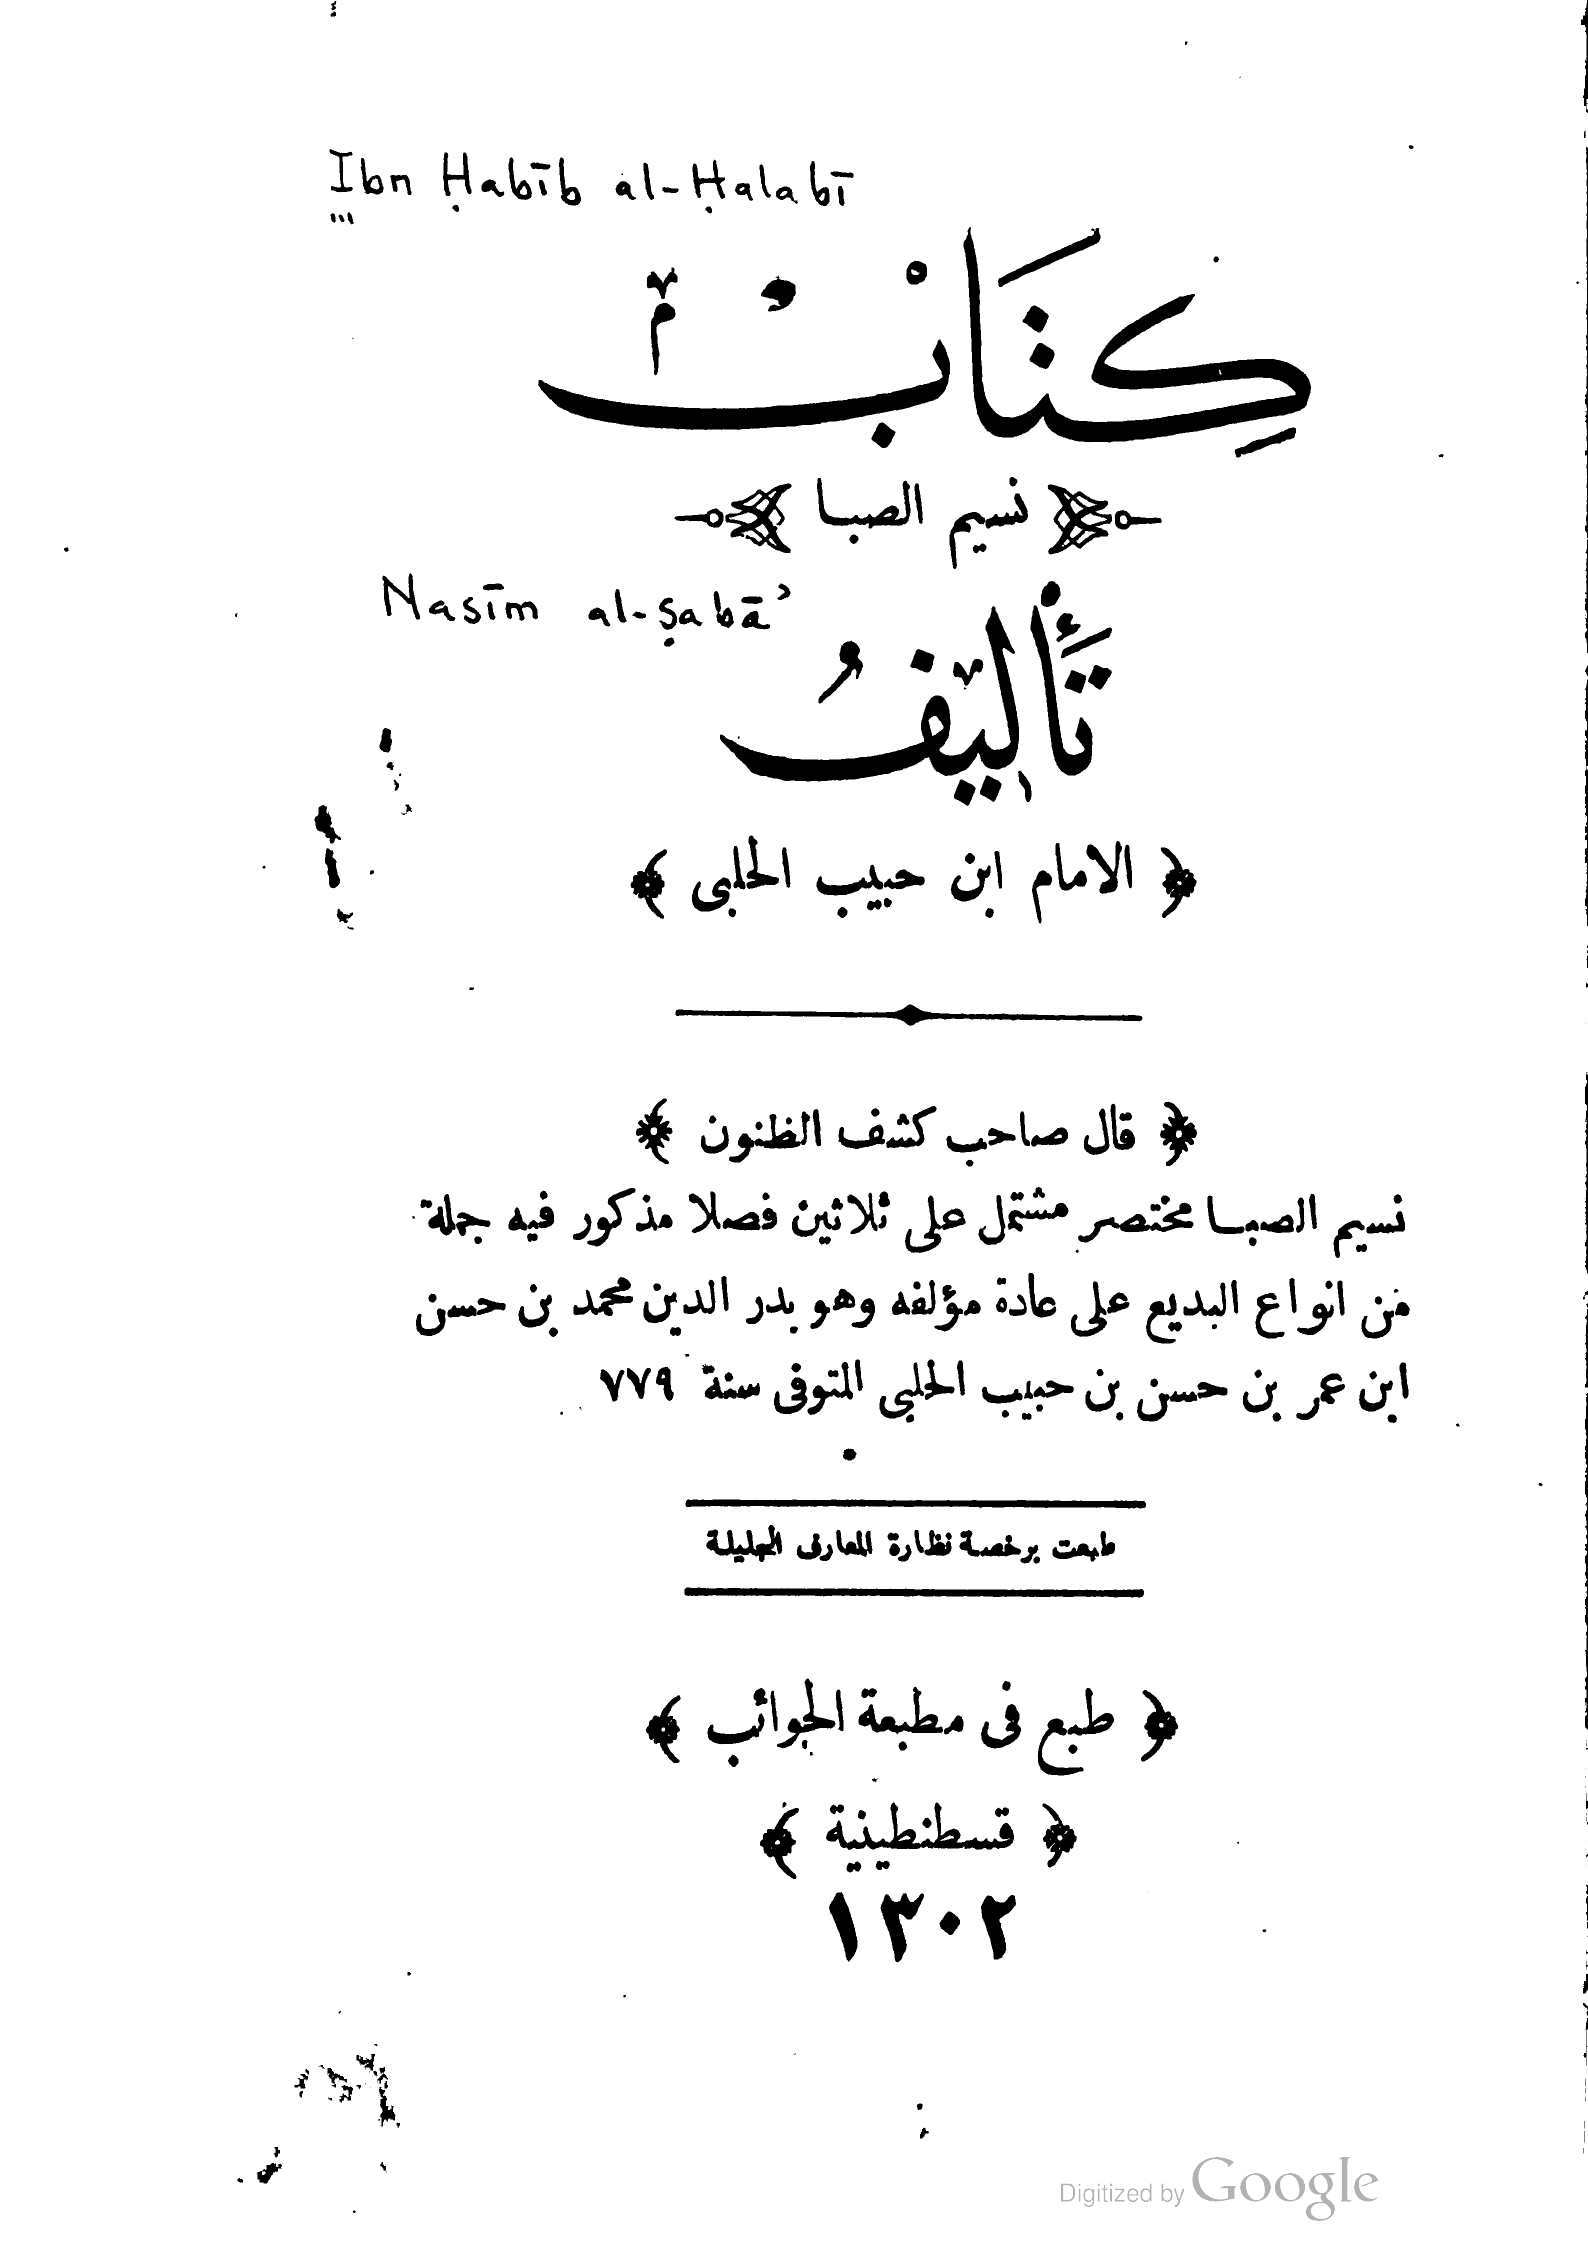 Ibn Ḥabīb al-Ḥalabī
كِتَابْ
نسيم الصبا
Nasīm al-ṣabā'
تَأْلِيْفُ
﴿ الامام ابن حبيب الحلبى ﴾
﴿ قال صاحب كشف الظنون ﴾
نسيم الصبا مختصر مشتمل على ثلاثين فصلا مذكور فيه جملة
من انواع البديع على عادة مؤلفه وهو بدر الدين محمد بن حسن
ابن عمر بن حسن بن حبيب الحلبى المتوفى سنة ٧٧٩
طبعت برخصة نظارة المعارف الجليلة
﴿ طبع فى مطبعة الجوائب ﴾
﴿ قسطنطينية ﴾
١٣٠٢
Digitized by Google